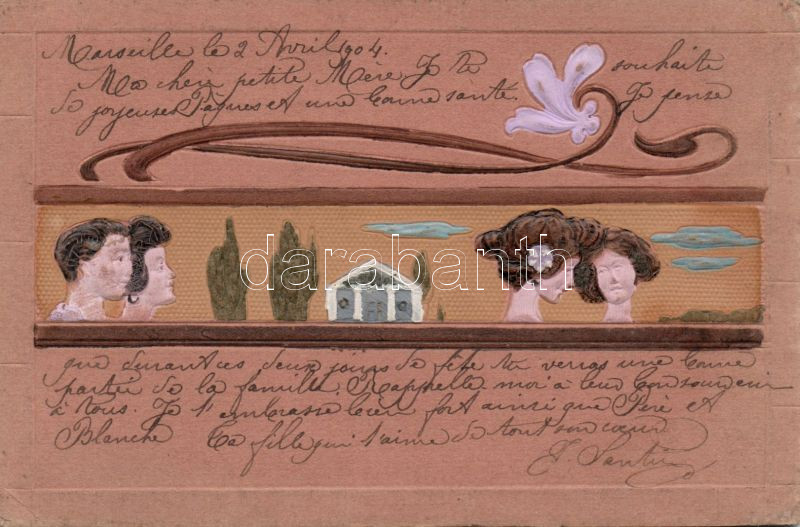 Marseille le 2 Avril 1904.
Ma chère petite Mère Je te souhaite
de joyeuses Pâques et une bonne santé. Je pense
darabanth
que durant ces deux jours de fête tu verras une bonne
partie de la famille. Rappelle moi à leur bon souvenir
à tous. Je t'embrasse bien fort ainsi que Père et
Blanche Ta fille qui t'aime de tout son cœur